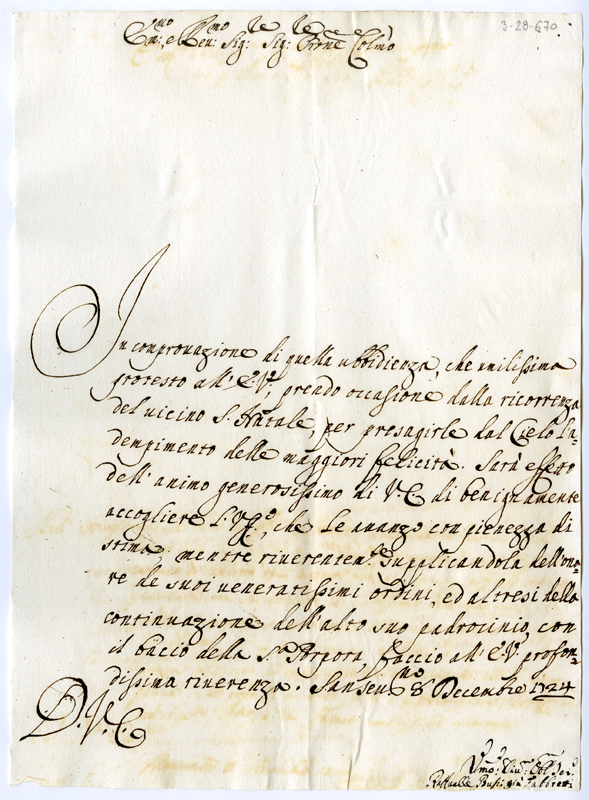 3-28-670
Em:mo, e Reu:mo Sig:re Sig:re Prone Colmo
In comprouazione di quella ubbidienza, che umilissima
protesto all' E.V., prendo occasione dalla ricorrenza
del uicino S. Natale, per presagirle dal Cielo l'a-
dempimento delle maggiori felicità. Sarà effetto
dell' animo generosissimo di V.E. di benignamente
accogliere che Le auanzo con pienezza di
stima; mentre riuerentem.te supplicandola dell' ono-
re de suoi ueneratissimi ordini, ed altresi della
continuazione dell' alto suo padrocinio, con
il bacio della S. Porpora, faccio all' E.V. profon-
dissima riuerenza. Sanseu:no 8 Decembre 1724
D. V. E.
Vmo: Obl: Ser:
Raffaelle